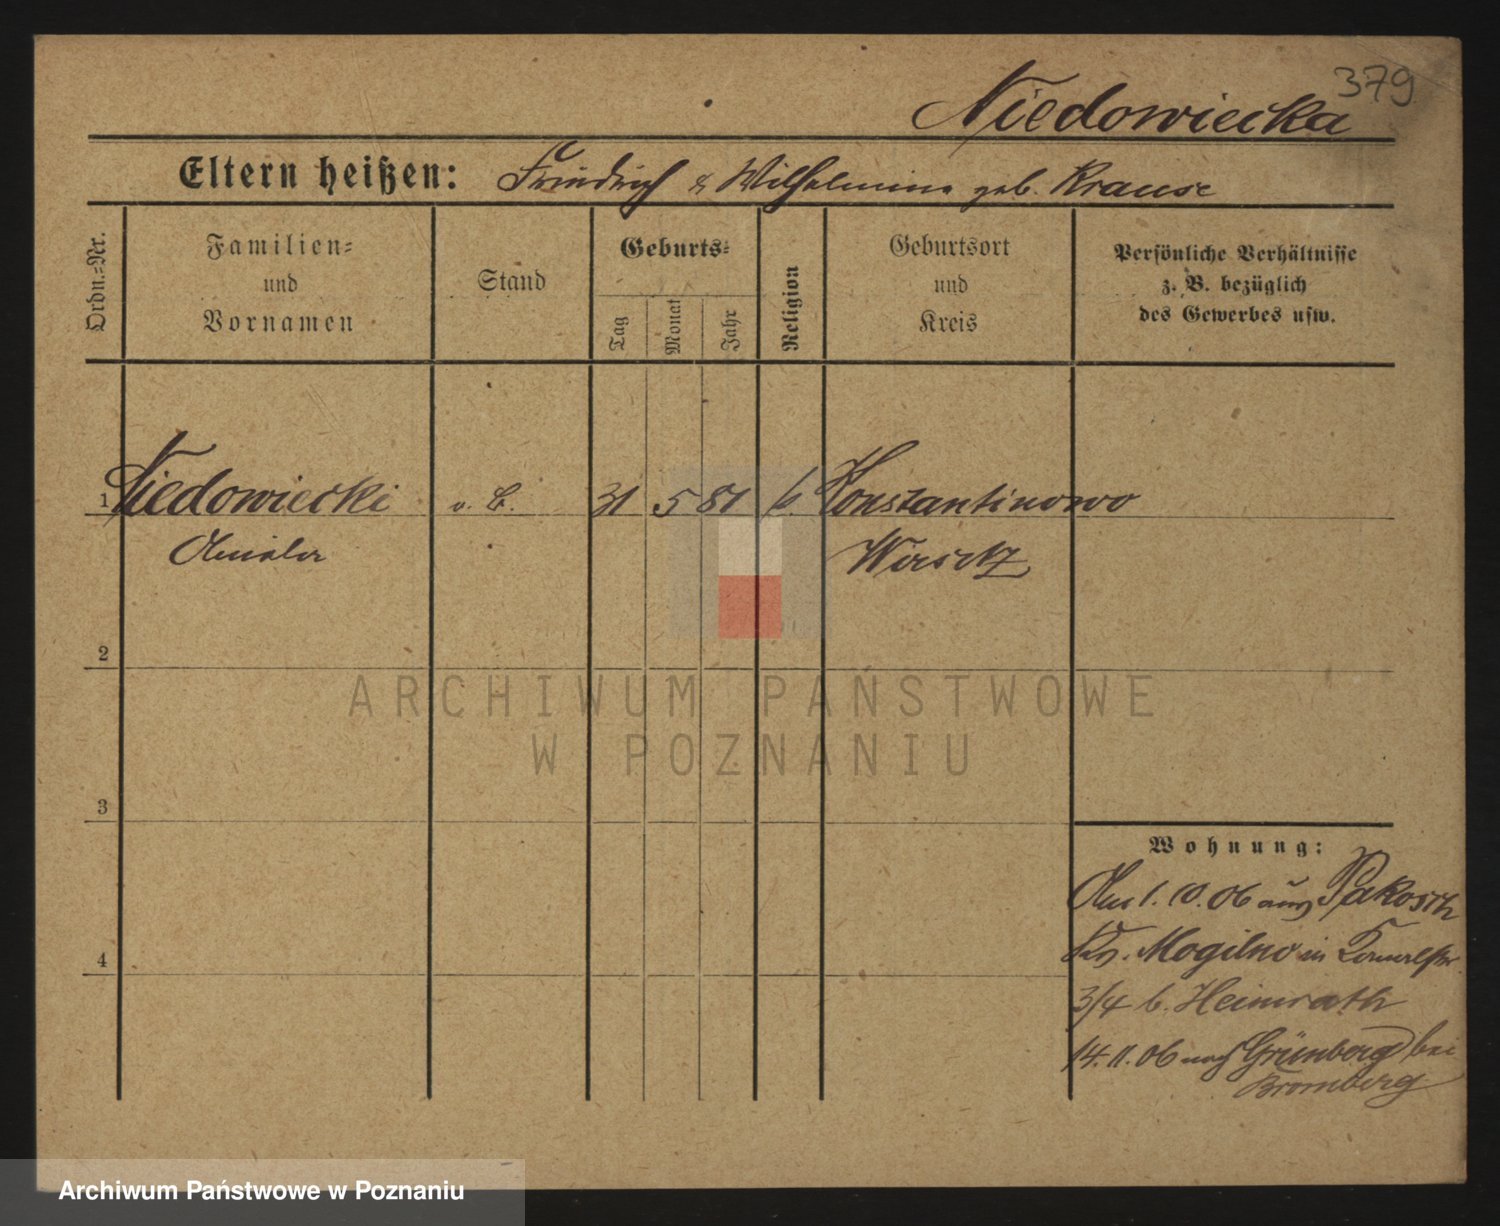 379
Niedowiecka
Eltern heißen: Friedrich & Wilhelmine geb. Krause
Ordn.=Nr.
Familien=
und
Vornamen
Stand
Geburts=
Tag
Monat
Jahr
Religion
Geburtsort
und
Kreis
Persönliche Verhältnisse
z. B. bezüglich
des Gewerbes usw.
1 Niedowiecki 31 5 81 Konstantinowo
Wirsitz
2
3
4
Wohnung:
Am 1.10.06 aus Pakosch
Kr. Mogilno in
3/4 b. Heimrath
14.11.06 nach Grünberg bei
Bromberg
ARCHIWUM PAŃSTWOWE
W POZNANIU
Archiwum Państwowe w Poznaniu